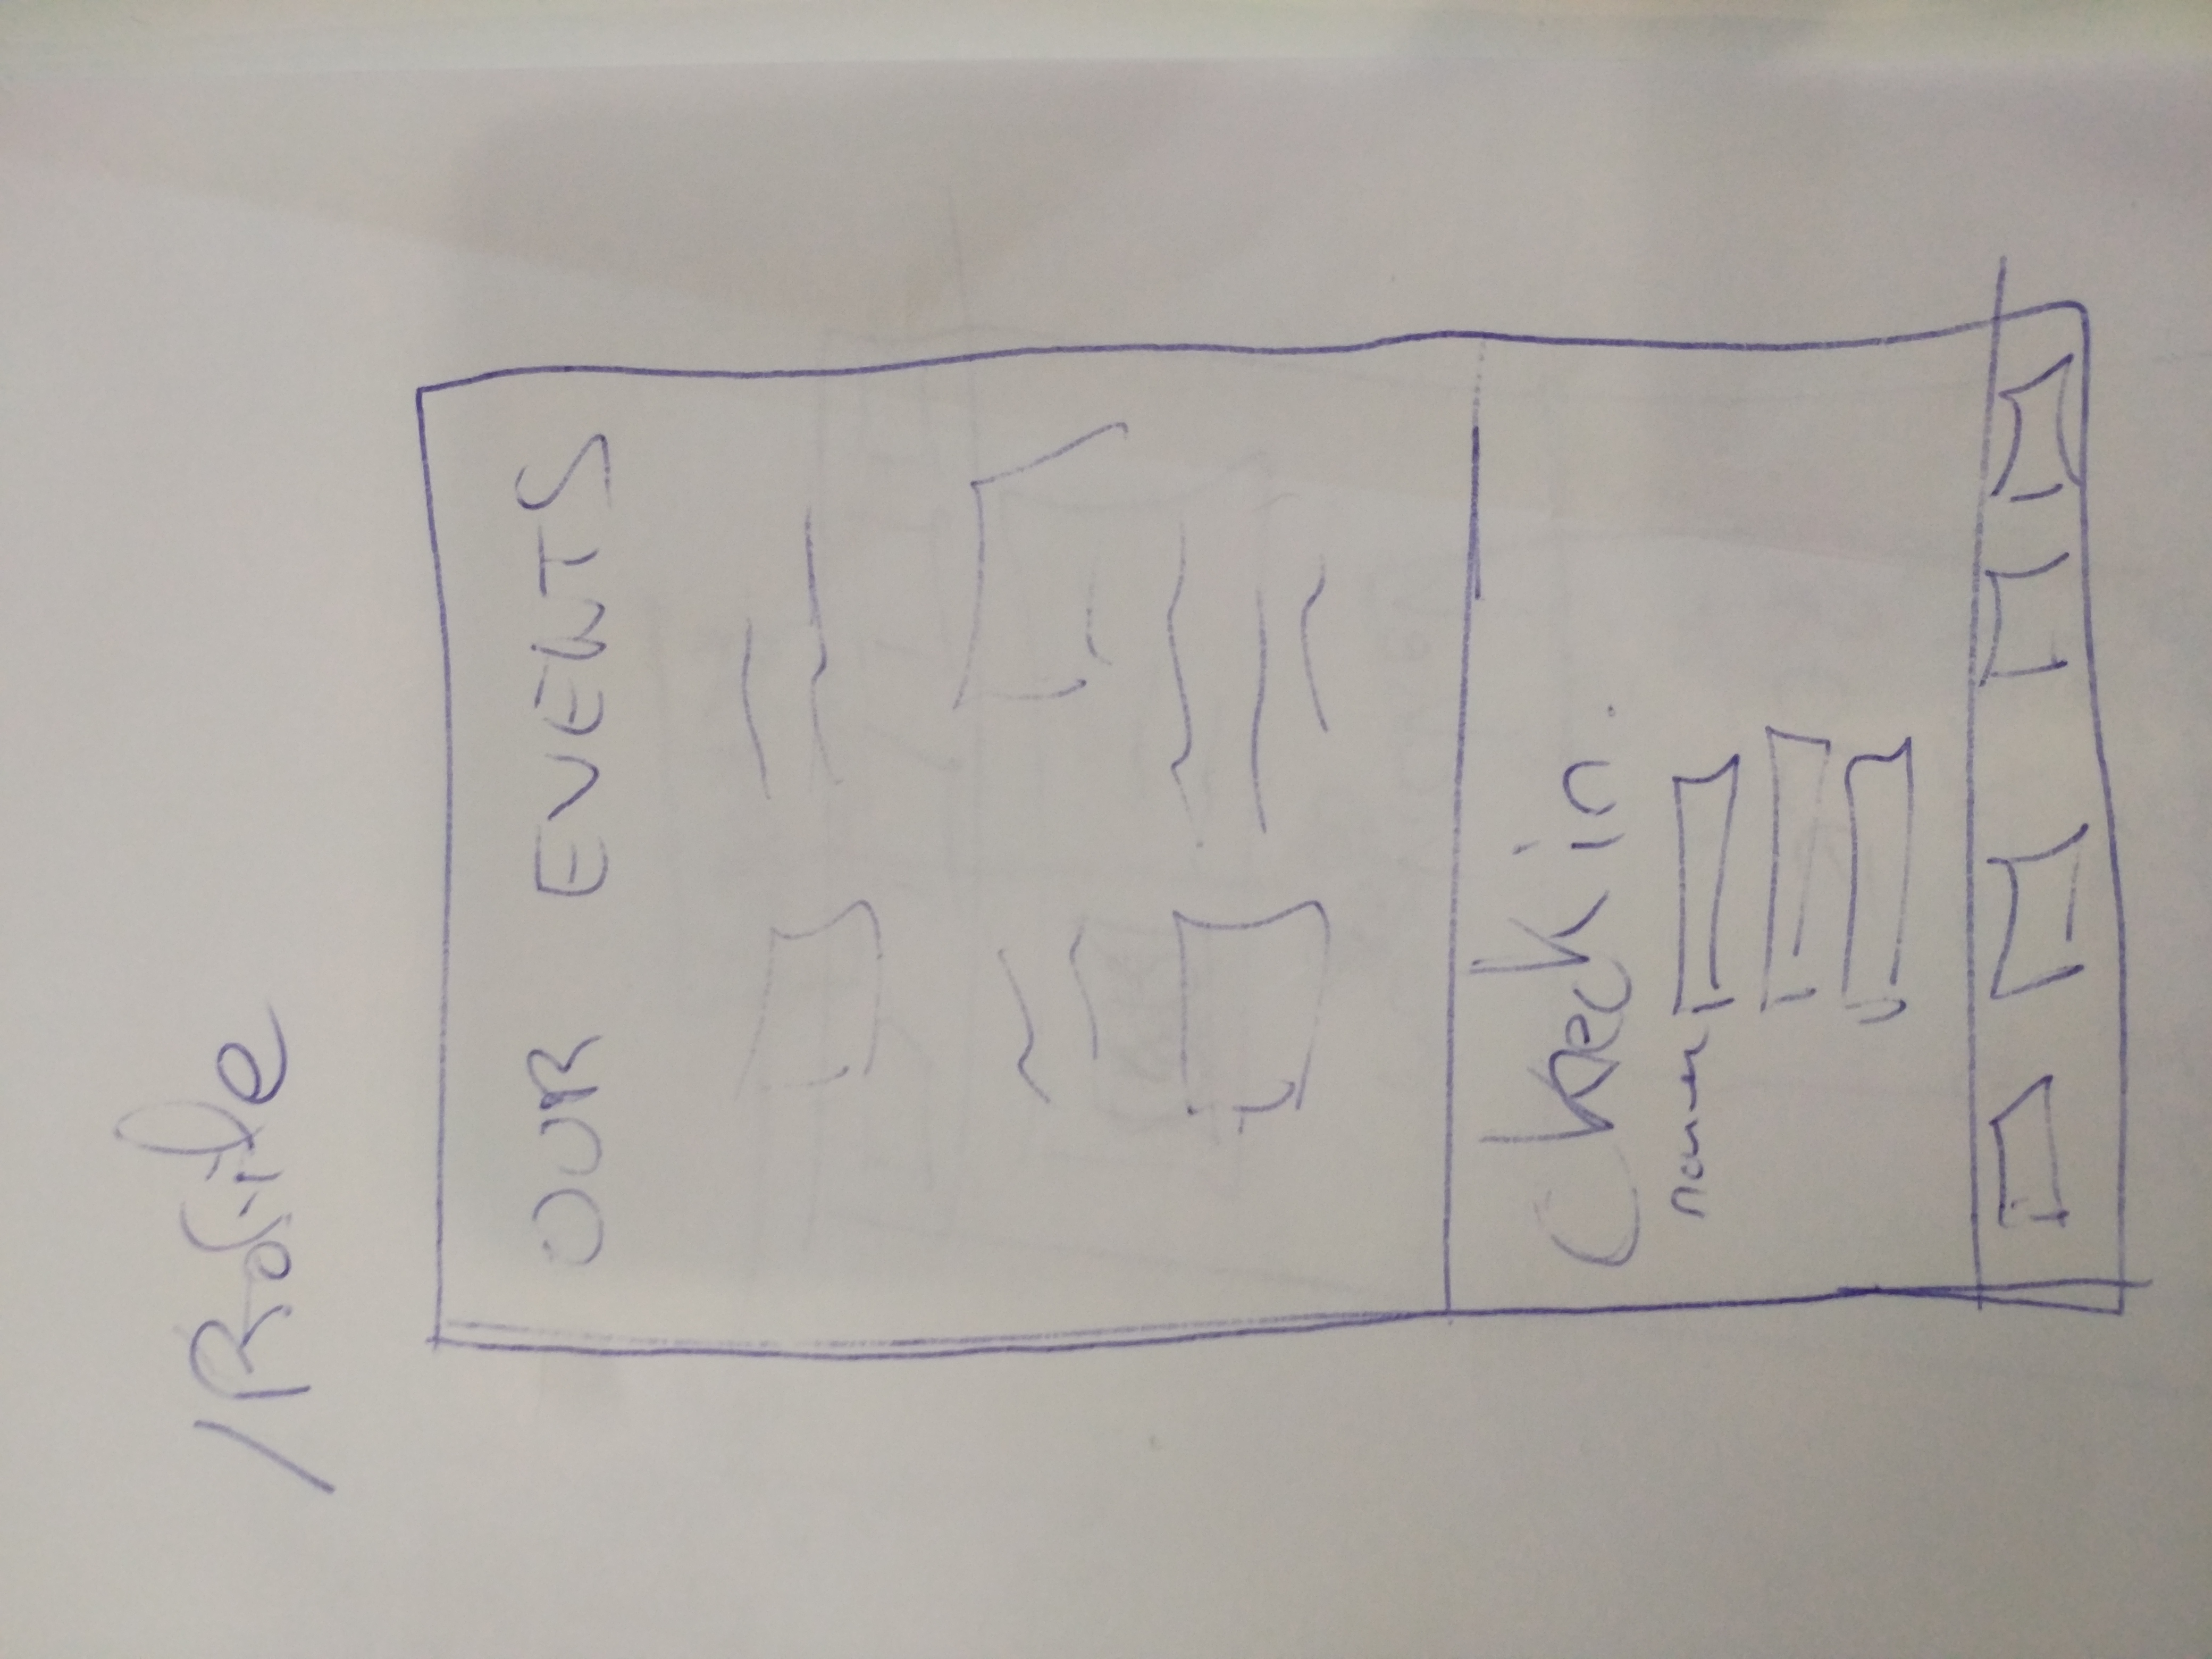 /Profile
OUR EVENTS
Check in.
name